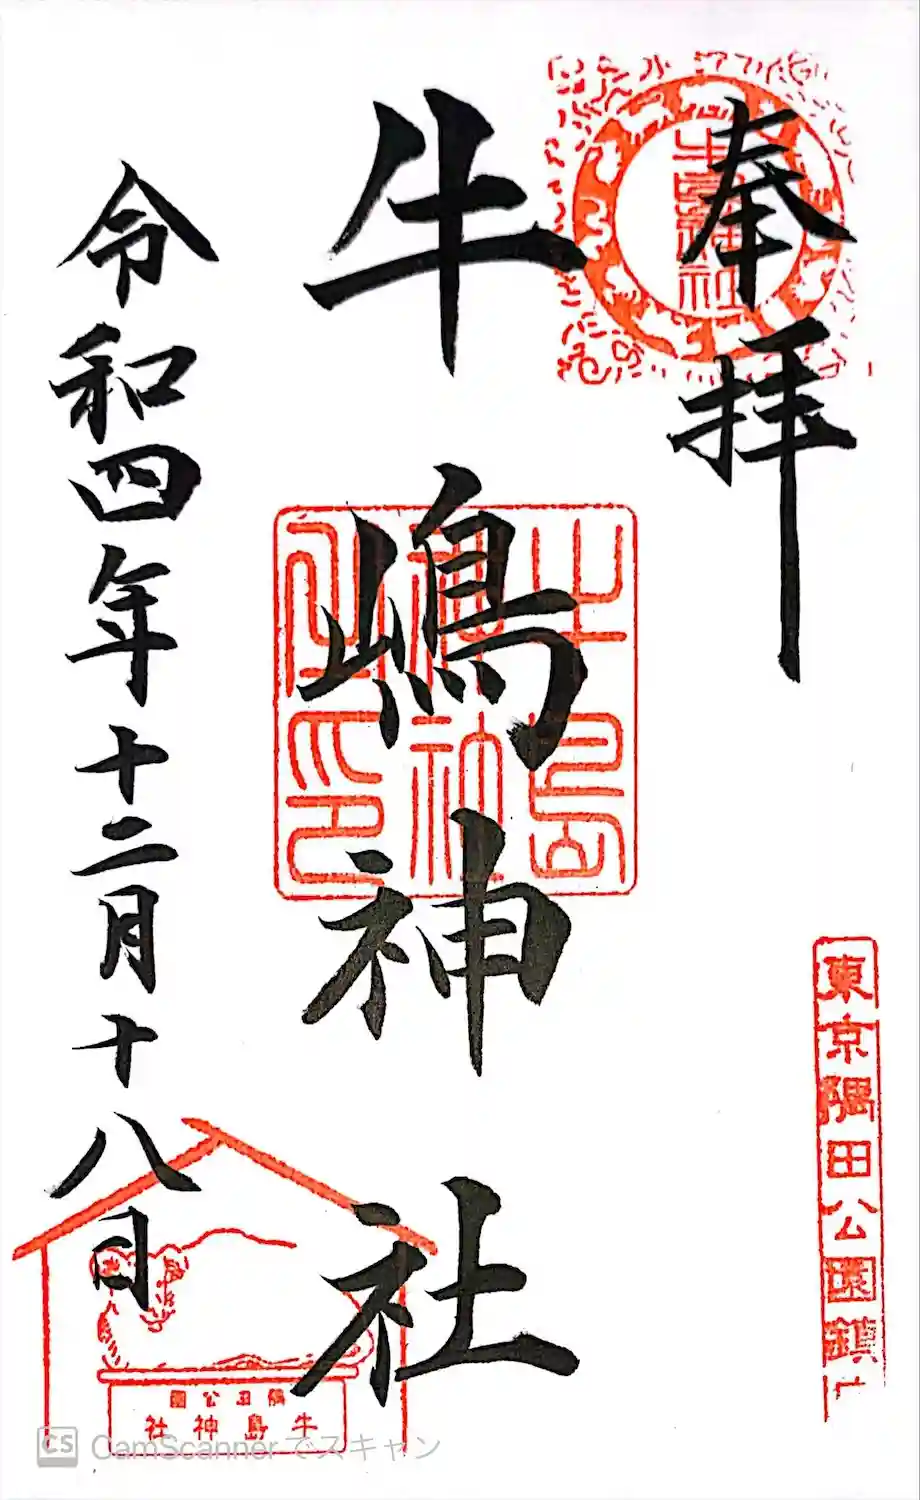 奉拝
牛島神社
東京隅田公園鎮
牛嶋神社
牛島
神社
之印
令和四年十二月十八日
隅田公園
牛島神社
CS CamScanner でスキャン